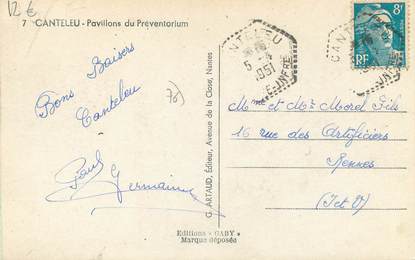 12 €
7 CANTELEU - Pavillons du Préventorium
CANTELEU
5 - 4
1951
CANTELEU
8F
RF
Bons Baisers
Canteleu
(76)
Paul
Germaine
G. ARTAUD, Éditeur, Avenue de la Close, Nantes
Mme et Mr Morel Fils
16 rue des Artificiers
Rennes
(I et V)
Editions "GABY"
Marque déposée